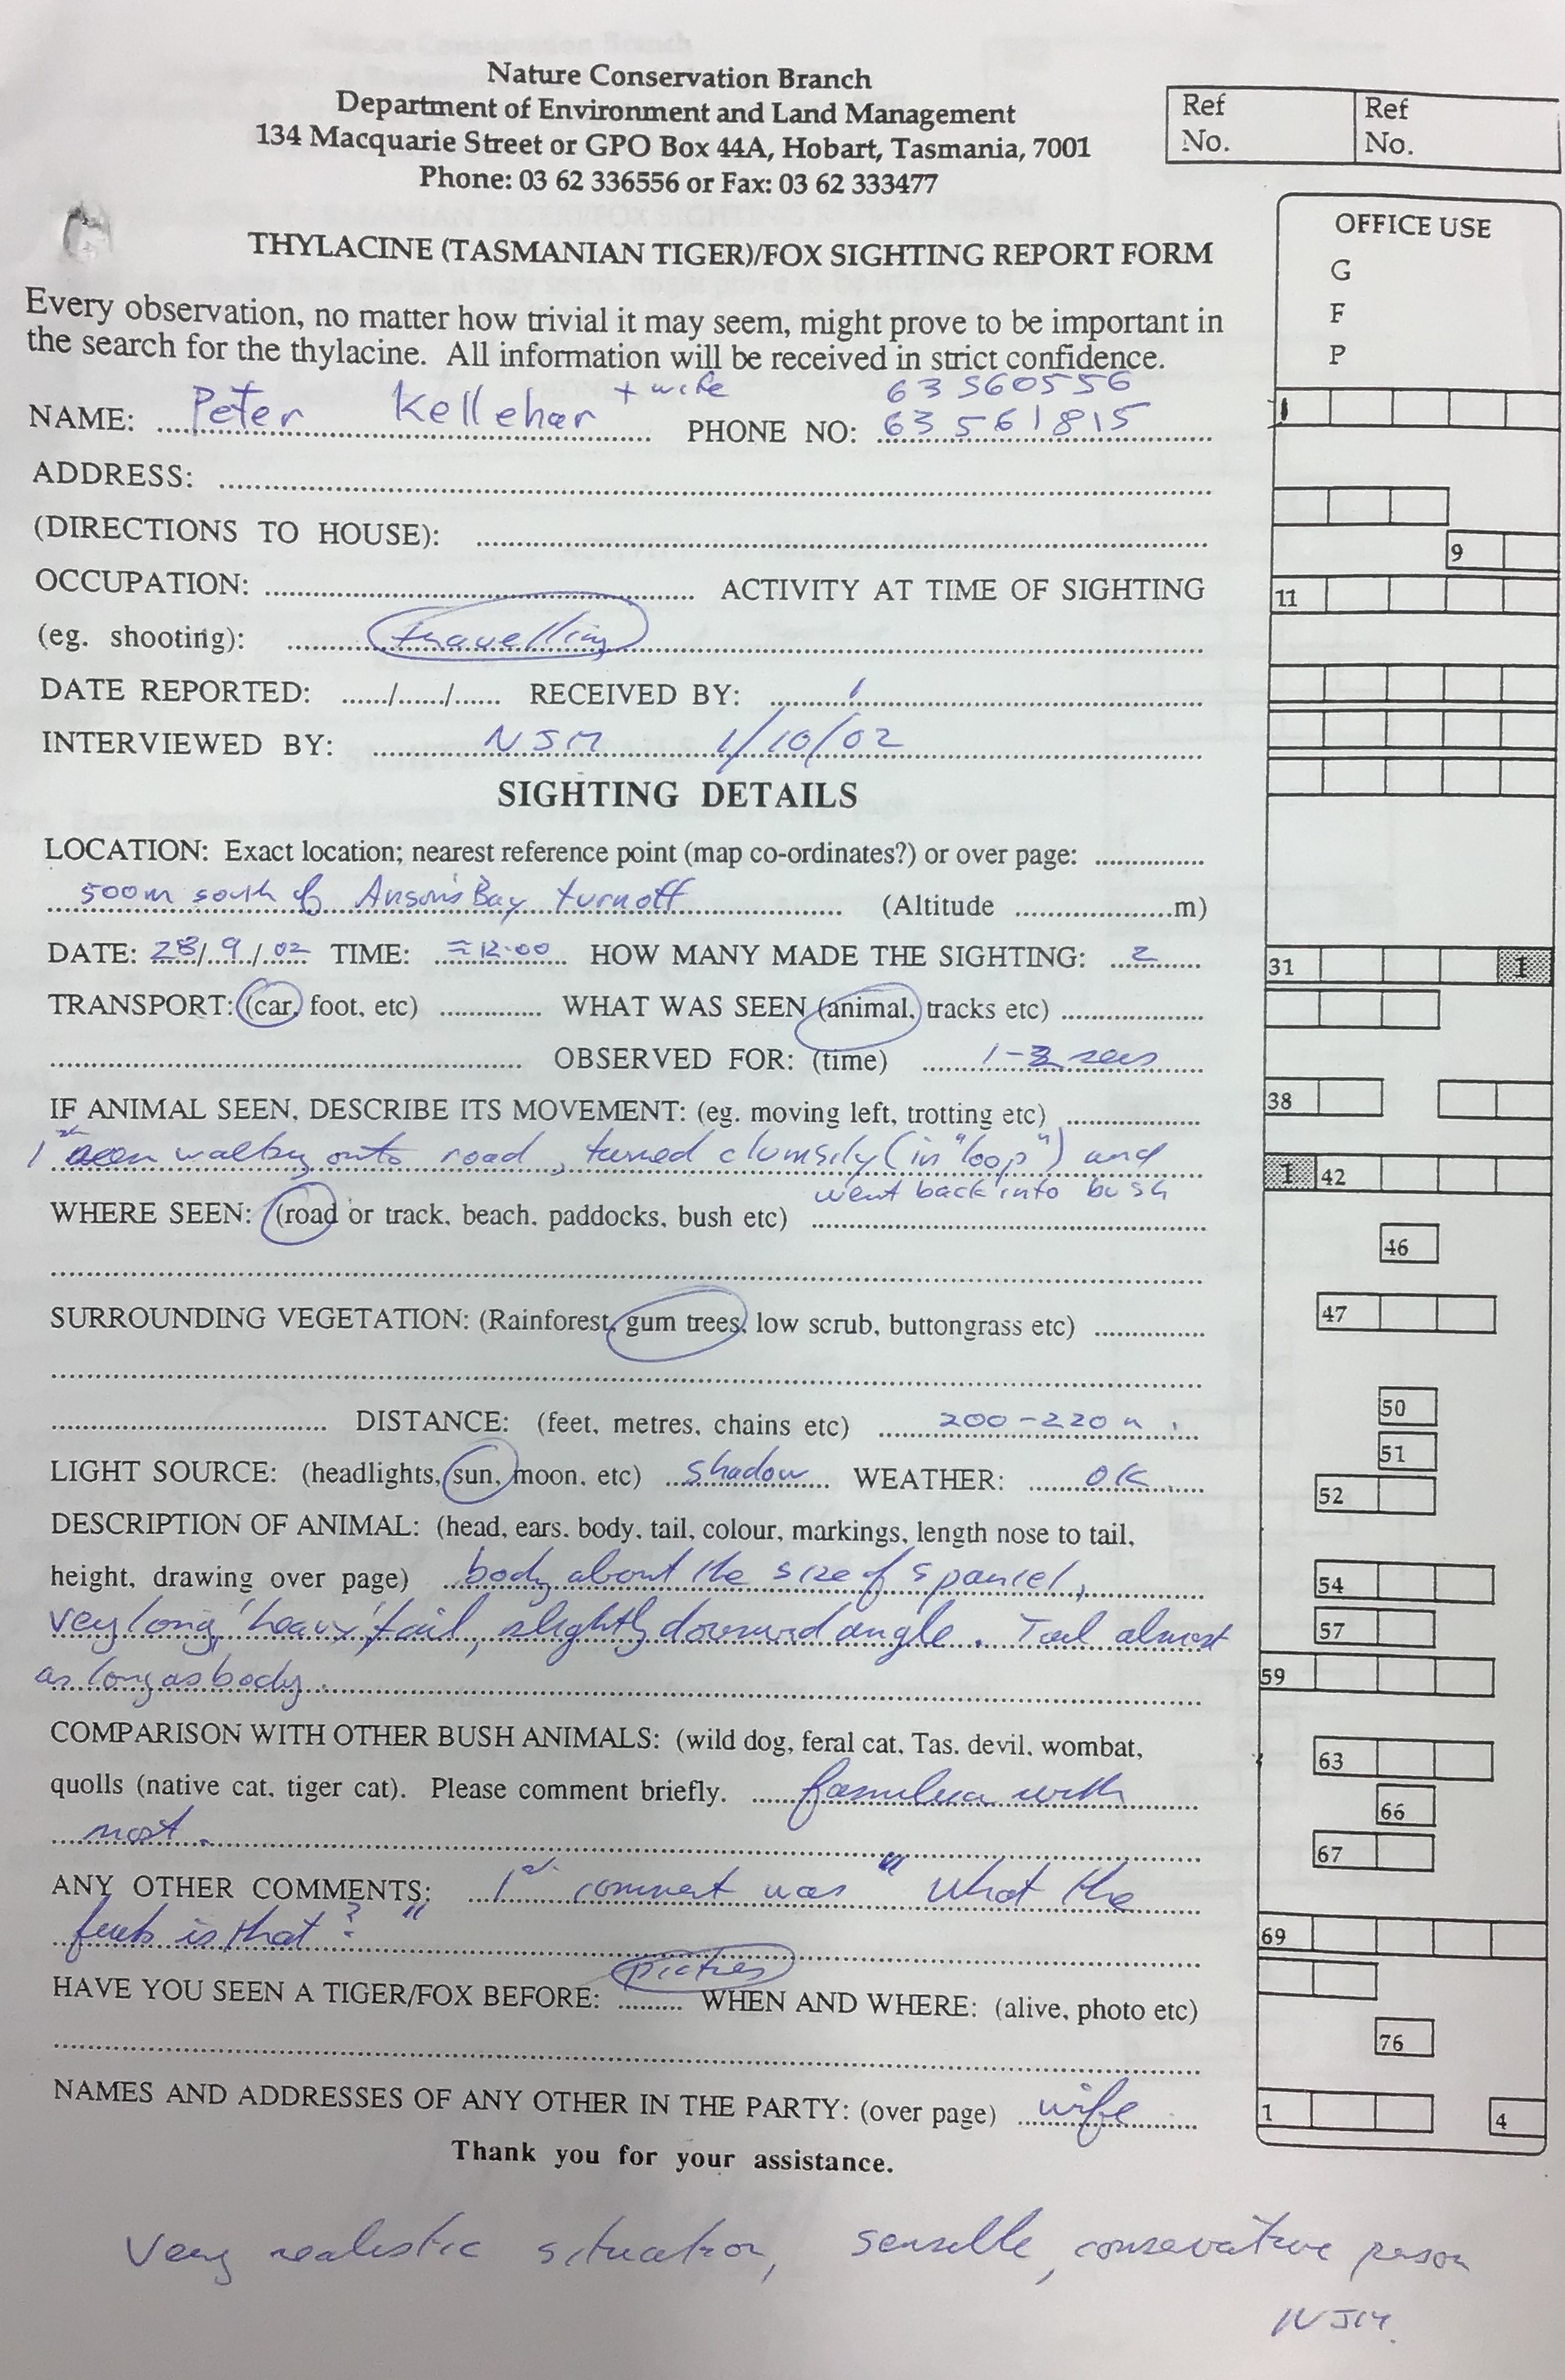 Nature Conservation Branch
Department of Environment and Land Management
134 Macquarie Street or GPO Box 44A, Hobart, Tasmania, 7001
Phone: 03 62 336556 or Fax: 03 62 333477
Ref No.
Ref No.
THYLACINE (TASMANIAN TIGER)/FOX SIGHTING REPORT FORM
OFFICE USE
G
F
P
Every observation, no matter how trivial it may seem, might prove to be important in
the search for the thylacine. All information will be received in strict confidence.
63560556
NAME: Peter Kellehar + wife PHONE NO: 63561815
1
ADDRESS:
(DIRECTIONS TO HOUSE):
9
OCCUPATION: ACTIVITY AT TIME OF SIGHTING
11
(eg. shooting): travelling
DATE REPORTED: ....../....../...... RECEIVED BY:
INTERVIEWED BY: NJM 1/10/02
SIGHTING DETAILS
LOCATION: Exact location; nearest reference point (map co-ordinates?) or over page:
500m south of Ansons Bay turnoff (Altitude m)
DATE: 28/9/02 TIME: ≈12:00 HOW MANY MADE THE SIGHTING: 2
31 1
TRANSPORT: (car, foot, etc) WHAT WAS SEEN (animal, tracks etc)
OBSERVED FOR: (time) 1-3 secs
IF ANIMAL SEEN, DESCRIBE ITS MOVEMENT: (eg. moving left, trotting etc)
38
1st seen walking onto road, turned clumsily (in "loop") and
1 42
went back into bush
WHERE SEEN: (road or track, beach, paddocks, bush etc)
46
SURROUNDING VEGETATION: (Rainforest, gum trees, low scrub, buttongrass etc)
47
DISTANCE: (feet, metres, chains etc) 200-220 m.
50
51
LIGHT SOURCE: (headlights, sun, moon, etc) shadow WEATHER: OK
52
DESCRIPTION OF ANIMAL: (head, ears, body, tail, colour, markings, length nose to tail,
height, drawing over page) body about the size of spaniel,
54
very long, 'heavy' tail, slightly downward angle. Tail almost
57
as long as body.
59
COMPARISON WITH OTHER BUSH ANIMALS: (wild dog, feral cat, Tas. devil, wombat,
63
quolls (native cat, tiger cat). Please comment briefly. familiar with
66
most.
67
ANY OTHER COMMENTS: 1st comment was "What the
fuck is that?"
69
HAVE YOU SEEN A TIGER/FOX BEFORE: pictures WHEN AND WHERE: (alive, photo etc)
76
NAMES AND ADDRESSES OF ANY OTHER IN THE PARTY: (over page) wife
1 4
Thank you for your assistance.
Very realistic situation, sensible, conservative person
NJM.